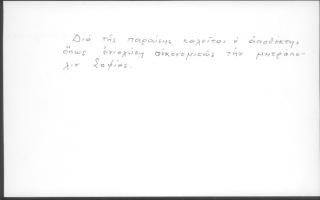 Διά τῆς παρούσης καλεῖται ὁ ἀποδέκτης
ὅπως ἐνισχύσῃ οἰκονομικῶς τήν μητρόπο-
λιν Σοφίας.